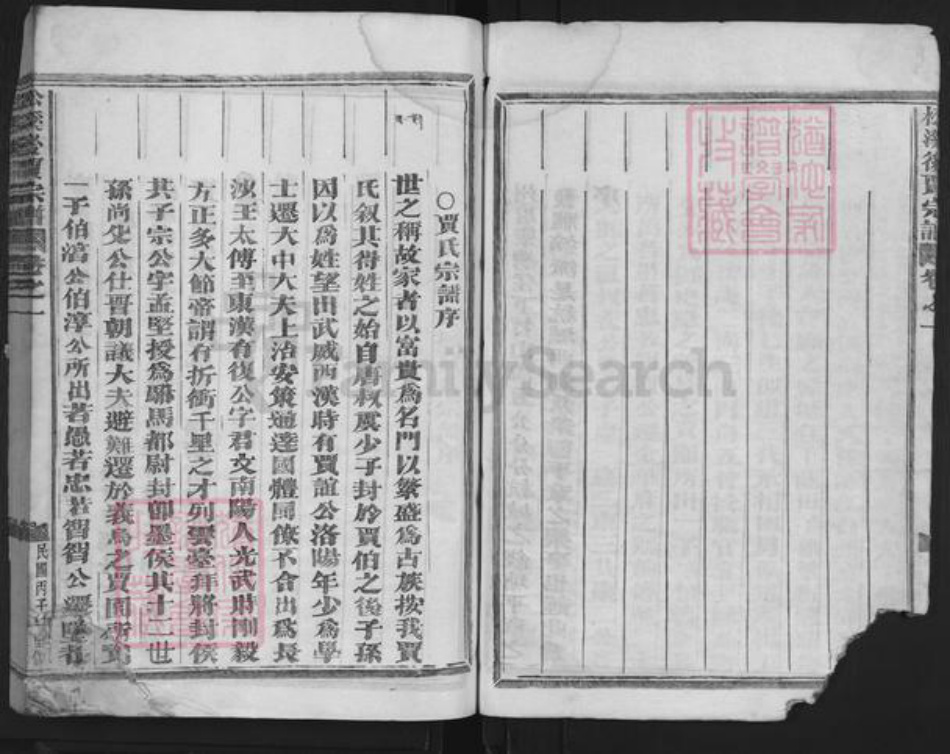 ○賈氏宗譜序
世之稱故家者以富貴為名門以繁盛為古族按我賈
氏叙其得姓之始自唐叔虞少子封於賈伯之後子孫
因以為姓望出武威西漢時有賈誼公洛陽年少為學
士遷大中大夫上治安策通達國體同僚不會出為長
沙王太傅至東漢有復公字君文南陽人光武時剛毅
方正多大節帝謂有折衝千里之才列雲臺拜將封侯
其子宗公字孟堅授為駙馬都尉封即墨侯其十二世
孫尚公仕晋朝議大夫避難遷於義烏之賈
一子伯清公伯淳公所出若愚若忠若智智公遷
民國丙子
宗譜
卷之一
FamilySearch